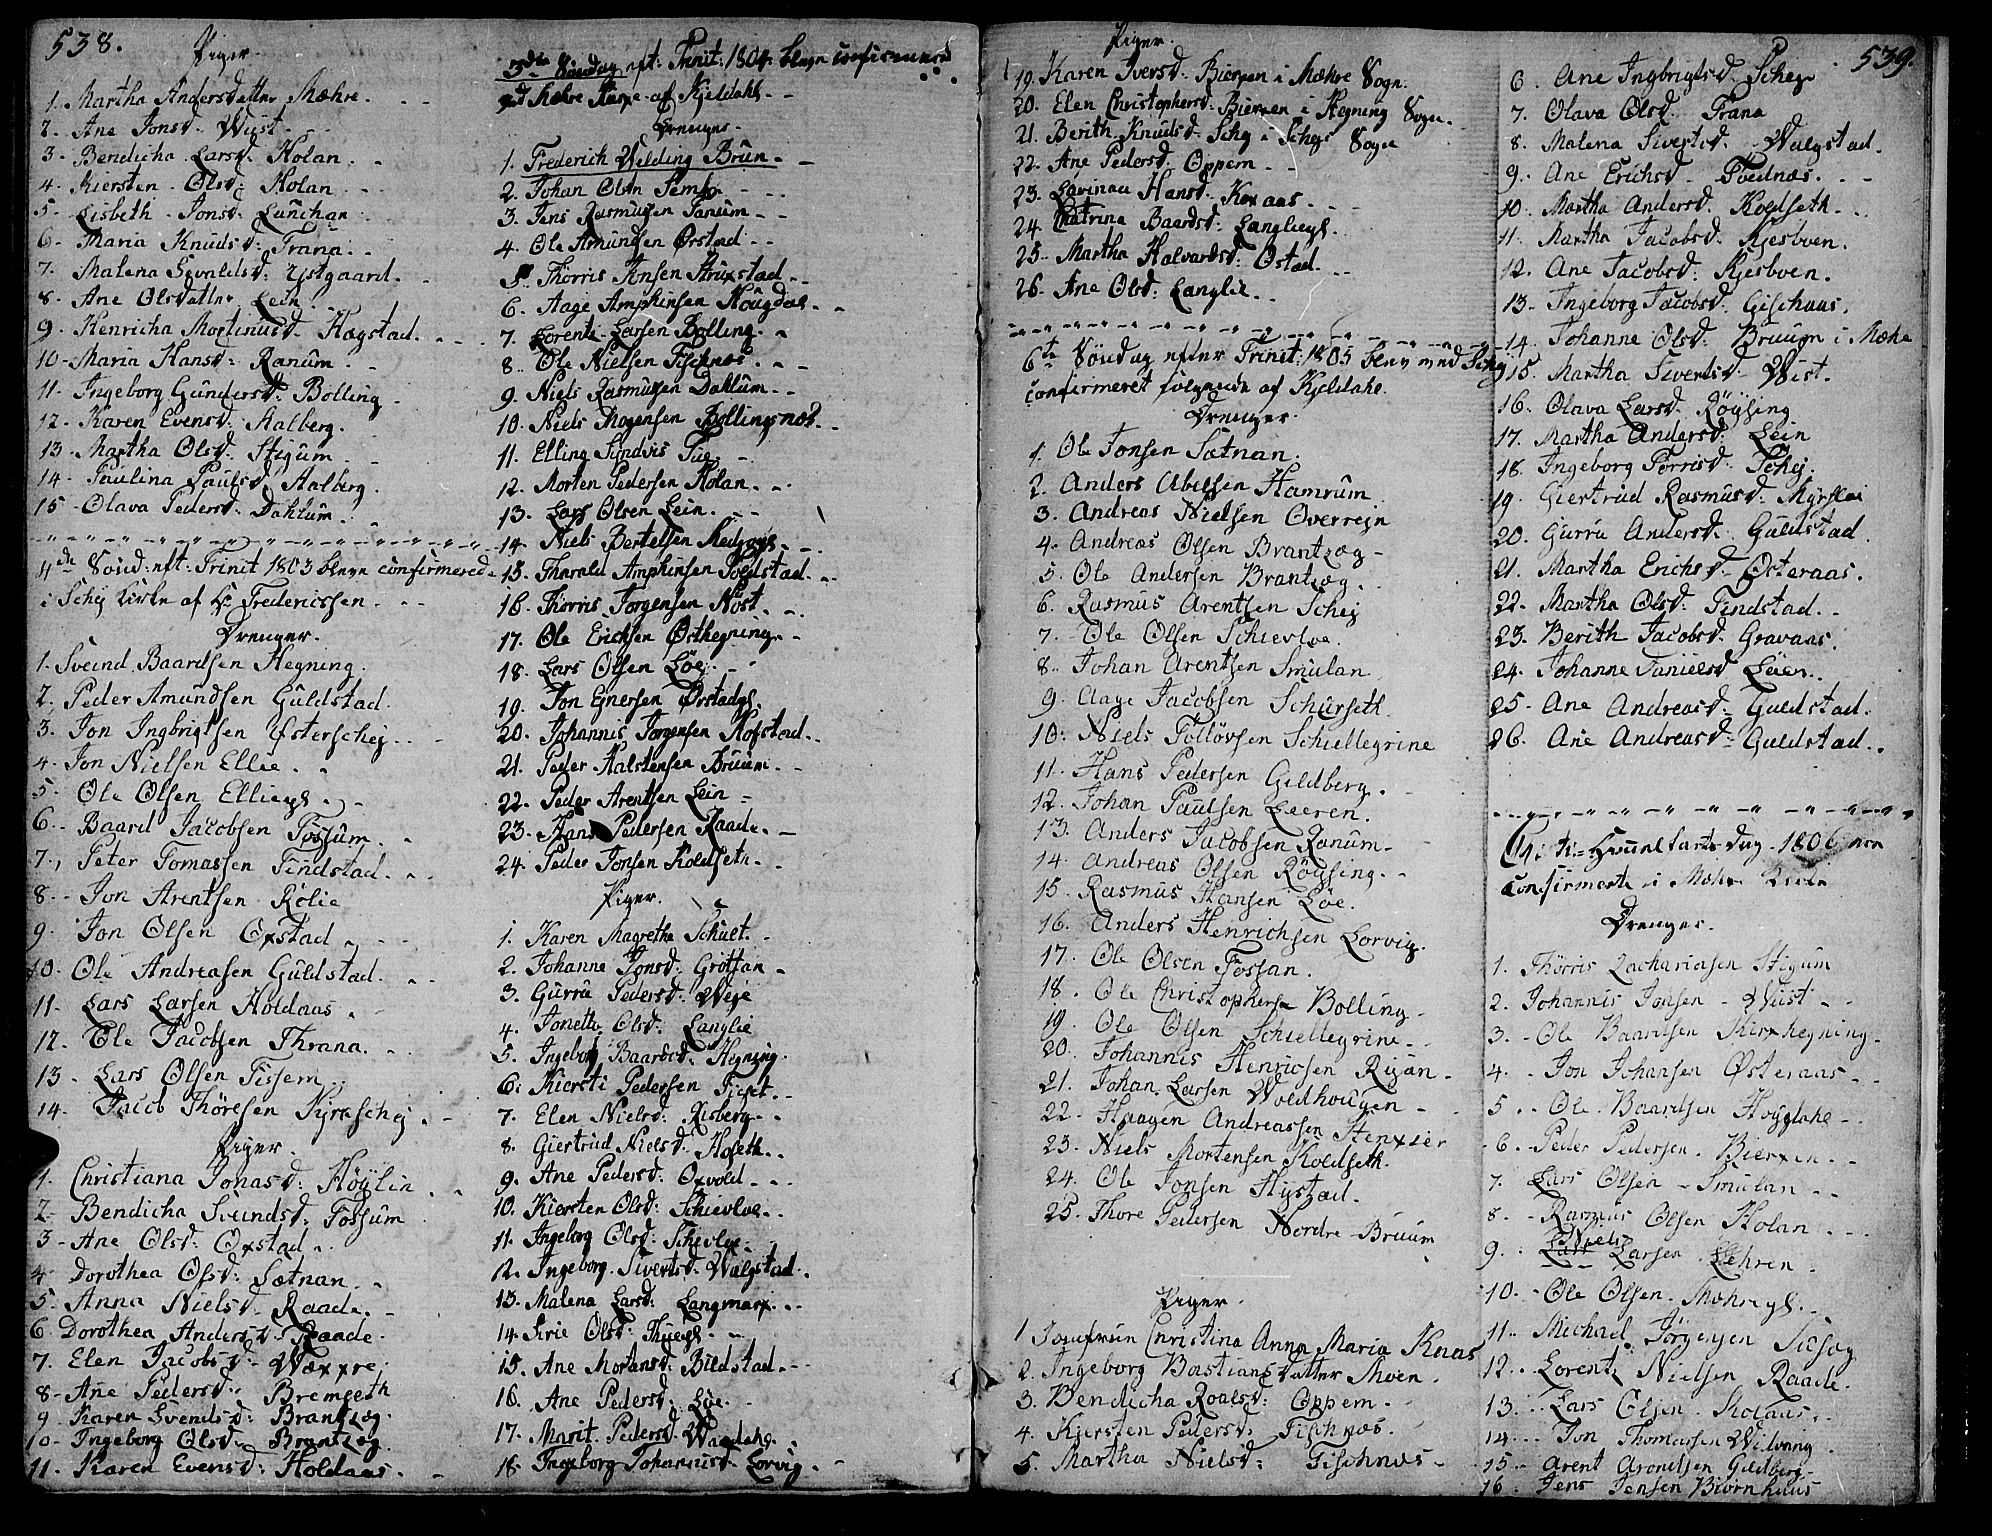 538.
Piger.
1. Martha Andersdatter Mæhre.
2. Ane Jonsd: Wüst.
3. Bendicha Larsd: Holan.
4. Kiersten Olsd: Holan
5. Lisbeth Jonsd: Lünchan
6. Maria Knudsd: Trana.
7. Malena Sevaldsd: Ystgaard.
8. Ane Olsdatter Lein
9. Henricha Mortinusd: Hagstad.
10. Maria Hansd: Ranum.
11. Ingeborg Gundersd: Bolling
12. Karen Evensd: Aalberg.
13. Martha Olsd: Stigum
14. Paulina Paulsd: Aalberg.
15. Olava Pedersd: Dahlum.
4de Sönd: eft: Trinit 1803 bleve confirmered
i Schej Kirke af Hr Frederichsen.
Drenger.
1. Sveind Baardsen Hegning.
2. Peder Amundsen Guldstad.
3. Jon Ingbrigtsen Østerschej
4. Jon Nielsen Ellie.
5. Ole Olsen Ellieegl.
6. Baard Jacobsen Fossum.
7. Peter Tomassen Findstad.
8. Jon Arentsen Rölie
9. Jon Olsen Oxstad
10. Ole Andreasen Guldstad.
11. Lars Larsen Holdaas.
12. Ole Jacobsen Thrana.
13. Lars Olsen Fissem
14. Jacob Thöresen Kyrkschej
Piger.
1. Christiana Jonasd: Höylin
2. Bendicha Sveindsd: Fossum
3. Ane Olsd: Oxstad
4. Dorothea Olsd: Sætnan
5. Anna Nielsd: Raade.
6. Dorothea Andersd: Raade.
7. Elen Jacobsd: Wæxxre
8. Ane Pedersd: Bremseth
9. Karen Svendsd: Brantzæg
10. Ingeborg Olsd: Brantzæg
11. Karen Evensd: Holdaas.
3die Söndag eft: Trinit: 1804 bleve confirmered
ved Mæhre Kirke af Kjeldahl
Drenger.
1. Frederich Welding Brün
2. Johan Olsen Semb
3. Jens Rasmusen Tanum
4. Ole Amundsen Örstad
5. Thörris Jonsen Struxstad
6. Aage Amphinsen Hougdal
7. Lorents Larsen Bolling.
8. Ole Nielsen Fischnæs
9. Niels Rasmusen Dahlum
10. Niels Mogensen Bollingsnæs
11. Elling Sundvis Tue.
12. Morten Pedersen Holan.
13. Lars Olsen Lein.
14. Niels Bertelsen
15. Tharald Amphinsen Poelstad.
16. Thörris Jorgensen Nöst
17. Ole Erichsen Østhegning
18. Lars Olsen Löe
19. Jon Enersen Örstadgl.
20. Johannis Jörgensen Hofstad.
21. Peder Halstensen Bruum
22. Peder Arentsen Lein
23. Hans Pedersen Raade.
24. Peder Jonsen Koldseth
Piger.
1. Karen Magretha Schult.
2. Johanne Jonsd: Grötsan
3. Gurru Pedersd: Weje
4. Jonetta Olsd: Langlie
5. Ingeborg Baardsd: Hegning.
6. Kiersti Pedersen Ficht.
7. Elen Nielsd: Risberg
8. Giertrud Nielsd: Hoseth
9. Ane Pedersd: Oxvold
10. Kiersten Olsd: Schievloe.
11. Ingeborg Olsd: Schevloe
12. Ingeborg Siverdsd: Walgstad.
13. Malena Larsd: Langmarx
14. Sirie Olsd: Thuegl.
15. Ane Mortensd: Bildstad
16. Ane Pedersd: Löe
17. Marit Pedersd: Waadahl
18. Ingeborg Johannisd: Lorvig
539.
Piger
19. Karen Iversd: Bierxen i Mæhre Sogn.
20. Elen Christophersd: Bierxen i Hegning Sogn.
21. Berith Knudsd: Schej i Schejs Sogn
22. Ane Pedersd: Oppem
23. Lavinau Hansd: Koxaas
24. Chatrina Baardsd: Langliegl.
25. Martha Halvardsd: Östad.
26. Ane Olsd: Langlie
6te Söndag efter Trinit: 1805 blev ved Schej
confirmeret fölgende af Kjeldahl.
Drenger.
1. Ole Jonsen Sætnan.
2. Anders Abelsen Hamrum
3. Andreas Nielsen Overrejn
4. Andreas Olsen Brantzæg
5. Ole Andersen Brantzæg.
6. Rasmus Arentsen Schej
7. Ole Olsen Schievloe.
8. Johan Arentsen Smulan
9. Aage Jacobsen Schürseth
10. Niels Tollövsen Schiellegrine
11. Hans Pedersen Gildberg.
12. Johan Paulsen Leeren.
13. Anders Jacobsen Ranum
14. Andreas Olsen Röysing
15. Rasmus Hansen Löe.
16. Anders Henrichsen Lorvig.
17. Ole Olsen Fossan.
18. Ole Christophersen Bolling
19. Ole Olsen Schiellegrine
20. Johannis Henricsen Rijan
21. Johan Larsen Woldhougen
22. Haagen Andreassen Henxier
23. Niels Mortensen Koldseth.
24. Ole Jonsen Hystad.
25. Thore Pedersen Nordre Bruum
Piger.
1. Jomfrun Christina Anna Maria Knas
2. Ingeborg Bastiansdatter Moen.
3. Bendicha Roalsd: Oppem
4. Kjersten Pedersd: Fischnæs
5. Martha Nielsd: Fischnæs
6. Ane Ingbrigtsd: Schej
7. Olava Olsd: Trana
8. Malena Sivertsd: Walgstad.
9. Ane Erichsd: Tvednæs.
10. Martha Andersd: Koldseth.
11. Martha Jacobsd: Kjesboen.
12. Ane Jacobsd: Kjesboen.
13. Ingeborg Jacobsd: Gischaas.
14. Johanne Olsd: Bruum i Mæhre
15. Martha Sivertsd: Wist.
16. Olava Larsd: Röysing
17. Martha Andersd: Lein
18. Ingeborg Torrisd: Schej.
19. Giertrud Rasmusd: Myrslæt
20. Gurru Andersd: Guldstad.
21. Martha Erichsd: Østeraas.
22. Martha Olsd: Findstad.
23. Berith Jacobsd: Gravaas.
24. Johanne Danielsd: Löen.
25. Ane Andreasd: Guldstad.
26. Ane Andreasd: Guldstad.
Christi Himmelfarts dag 1806 ere
confirmerte i Mæhre Kirke
Drenger.
1. Thörris Zachariasen Stigum
2. Johannis Jonsen Wüst
3. Ole Baardsen Kirxhegning.
4. Jon Johansen Østeraas
5. Ole Baardsen Hojdahl
6. Peder Pedersen Bierxen
7. Lars Olsen Smulan
8. Rasmus Olsen Holan
Niels
9. Lars Larsen Lehren.
10. Ole Olsen Mæhregl.
11. Michael Jörgensen Tuseg
12. Lorentz Nielsen Raade.
13. Lars Olsen Molaas
14. Jon Thomassen Wilvang
15. Arent Arondsen Gildberg
16. Jens Jensen Biörnhaus